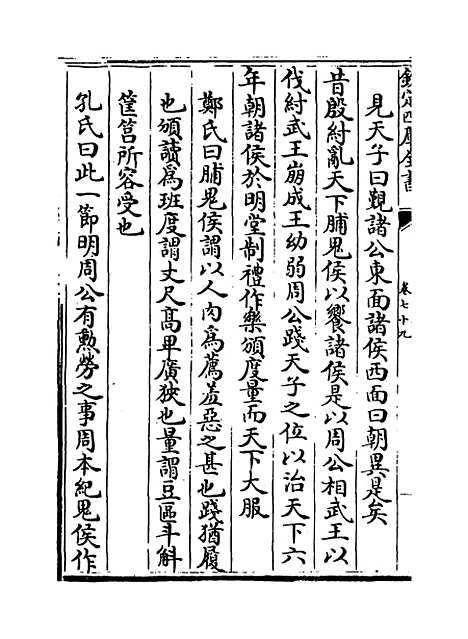 欽定四庫全書
卷七十九
見天子曰覲諸公東面諸侯西面曰朝異是矣
昔殷紂亂天下脯鬼侯以饗諸侯是以周公相武王以
伐紂武王崩成王幼弱周公踐天子之位以治天下六
年朝諸侯於明堂制禮作樂頒度量而天下大服
鄭氏曰脯鬼侯謂以人肉爲薦羞惡之甚也踐猶履
也頒讀爲班度謂丈尺高卑廣狹也量謂豆區斗斛
筐筥所容受也
孔氏曰此一節明周公有勲勞之事周本紀鬼侯作